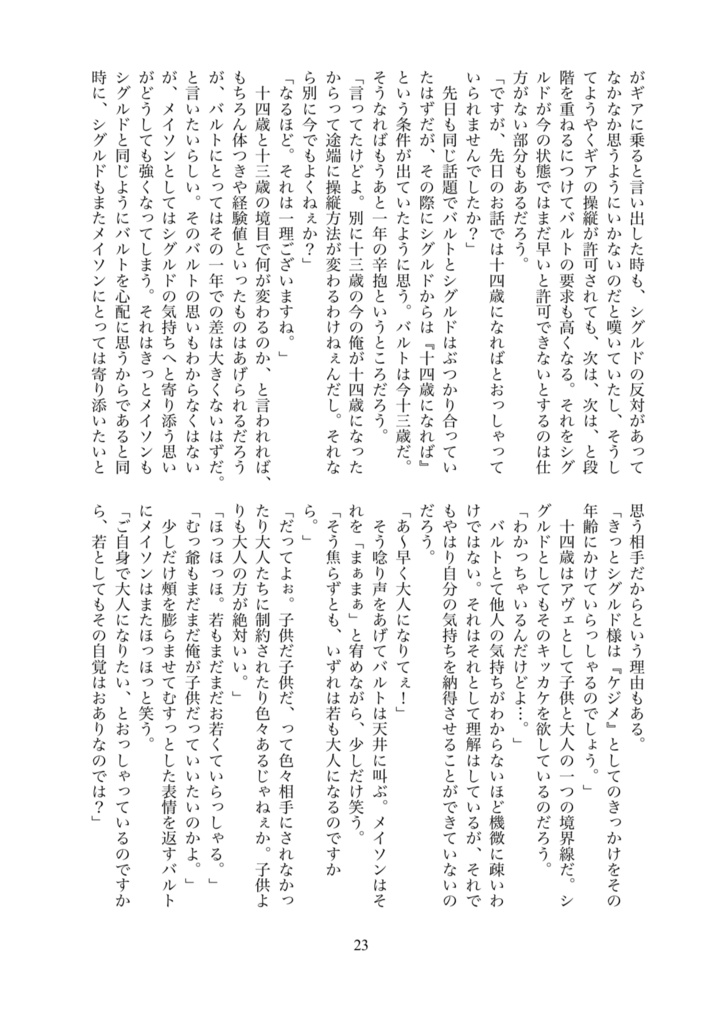 がギアに乗ると言い出した時も、シグルドの反対があって
なかなか思うようにいかないのだと嘆いていたし、そうし
てようやくギアの操縦が許可されても、次は、次は、と段
階を重ねるにつけてバルトの要求も高くなる。それをシグ
ルドが今の状態ではまだ早いと許可できないとするのは仕
方がない部分もあるだろう。
「ですが、先日のお話では十四歳になればとおっしゃって
いられませんでしたか？」
先日も同じ話題でバルトとシグルドはぶつかり合ってい
たはずだが、その際にシグルドからは『十四歳になれば』
という条件が出ていたように思う。バルトは今十三歳だ。
そうなればもうあと一年の辛抱というところだろう。
「言ってたけどよ。別に十三歳の今の俺が十四歳になった
からって途端に操縦方法が変わるわけねぇんだし。それな
ら別に今でもよくねぇか？」
「なるほど。それは一理ございますね。」
十四歳と十三歳の境目で何が変わるのか、と言われれば、
もちろん体つきや経験値といったものはあげられるだろう
が、バルトにとってはその一年での差は大きくないはずだ。
と言いたいらしい。そのバルトの思いもわからなくはない
が、メイソンとしてはシグルドの気持ちへと寄り添う思い
がどうしても強くなってしまう。それはきっとメイソンも
シグルドと同じようにバルトを心配に思うからであると同
時に、シグルドもまたメイソンにとっては寄り添いたいと
思う相手だからという理由もある。
「きっとシグルド様は『ケジメ』としてのきっかけをその
年齢にかけていらっしゃるのでしょう。」
十四歳はアヴェとして子供と大人の一つの境界線だ。シ
グルドとしてもそのキッカケを欲しているのだろう。
「わかっちゃいるんだけどよ…。」
バルトとて他人の気持ちがわからないほど機微に疎いわ
けではない。それはそれとして理解はしているが、それで
もやはり自分の気持ちを納得させることができていないの
だろう。
「あ～早く大人になりてぇ！」
そう唸り声をあげてバルトは天井に叫ぶ。メイソンはそ
れを「まぁまぁ」と宥めながら、少しだけ笑う。
「そう焦らずとも、いずれは若も大人になるのですか
ら。」
「だってよぉ。子供だ子供だ、って色々相手にされなかっ
たり大人たちに制約されたり色々あるじゃねぇか。子供よ
りも大人の方が絶対いい。」
「ほっほっほ。若もまだまだお若くていらっしゃる。」
「むっ爺もまだまだ俺が子供だっていいたいのかよ。」
少しだけ頬を膨らませてむすっとした表情を返すバルト
にメイソンはまたほっほっと笑う。
「ご自身で大人になりたい、とおっしゃっているのですか
ら、若としてもその自覚はおありなのでは？」
23